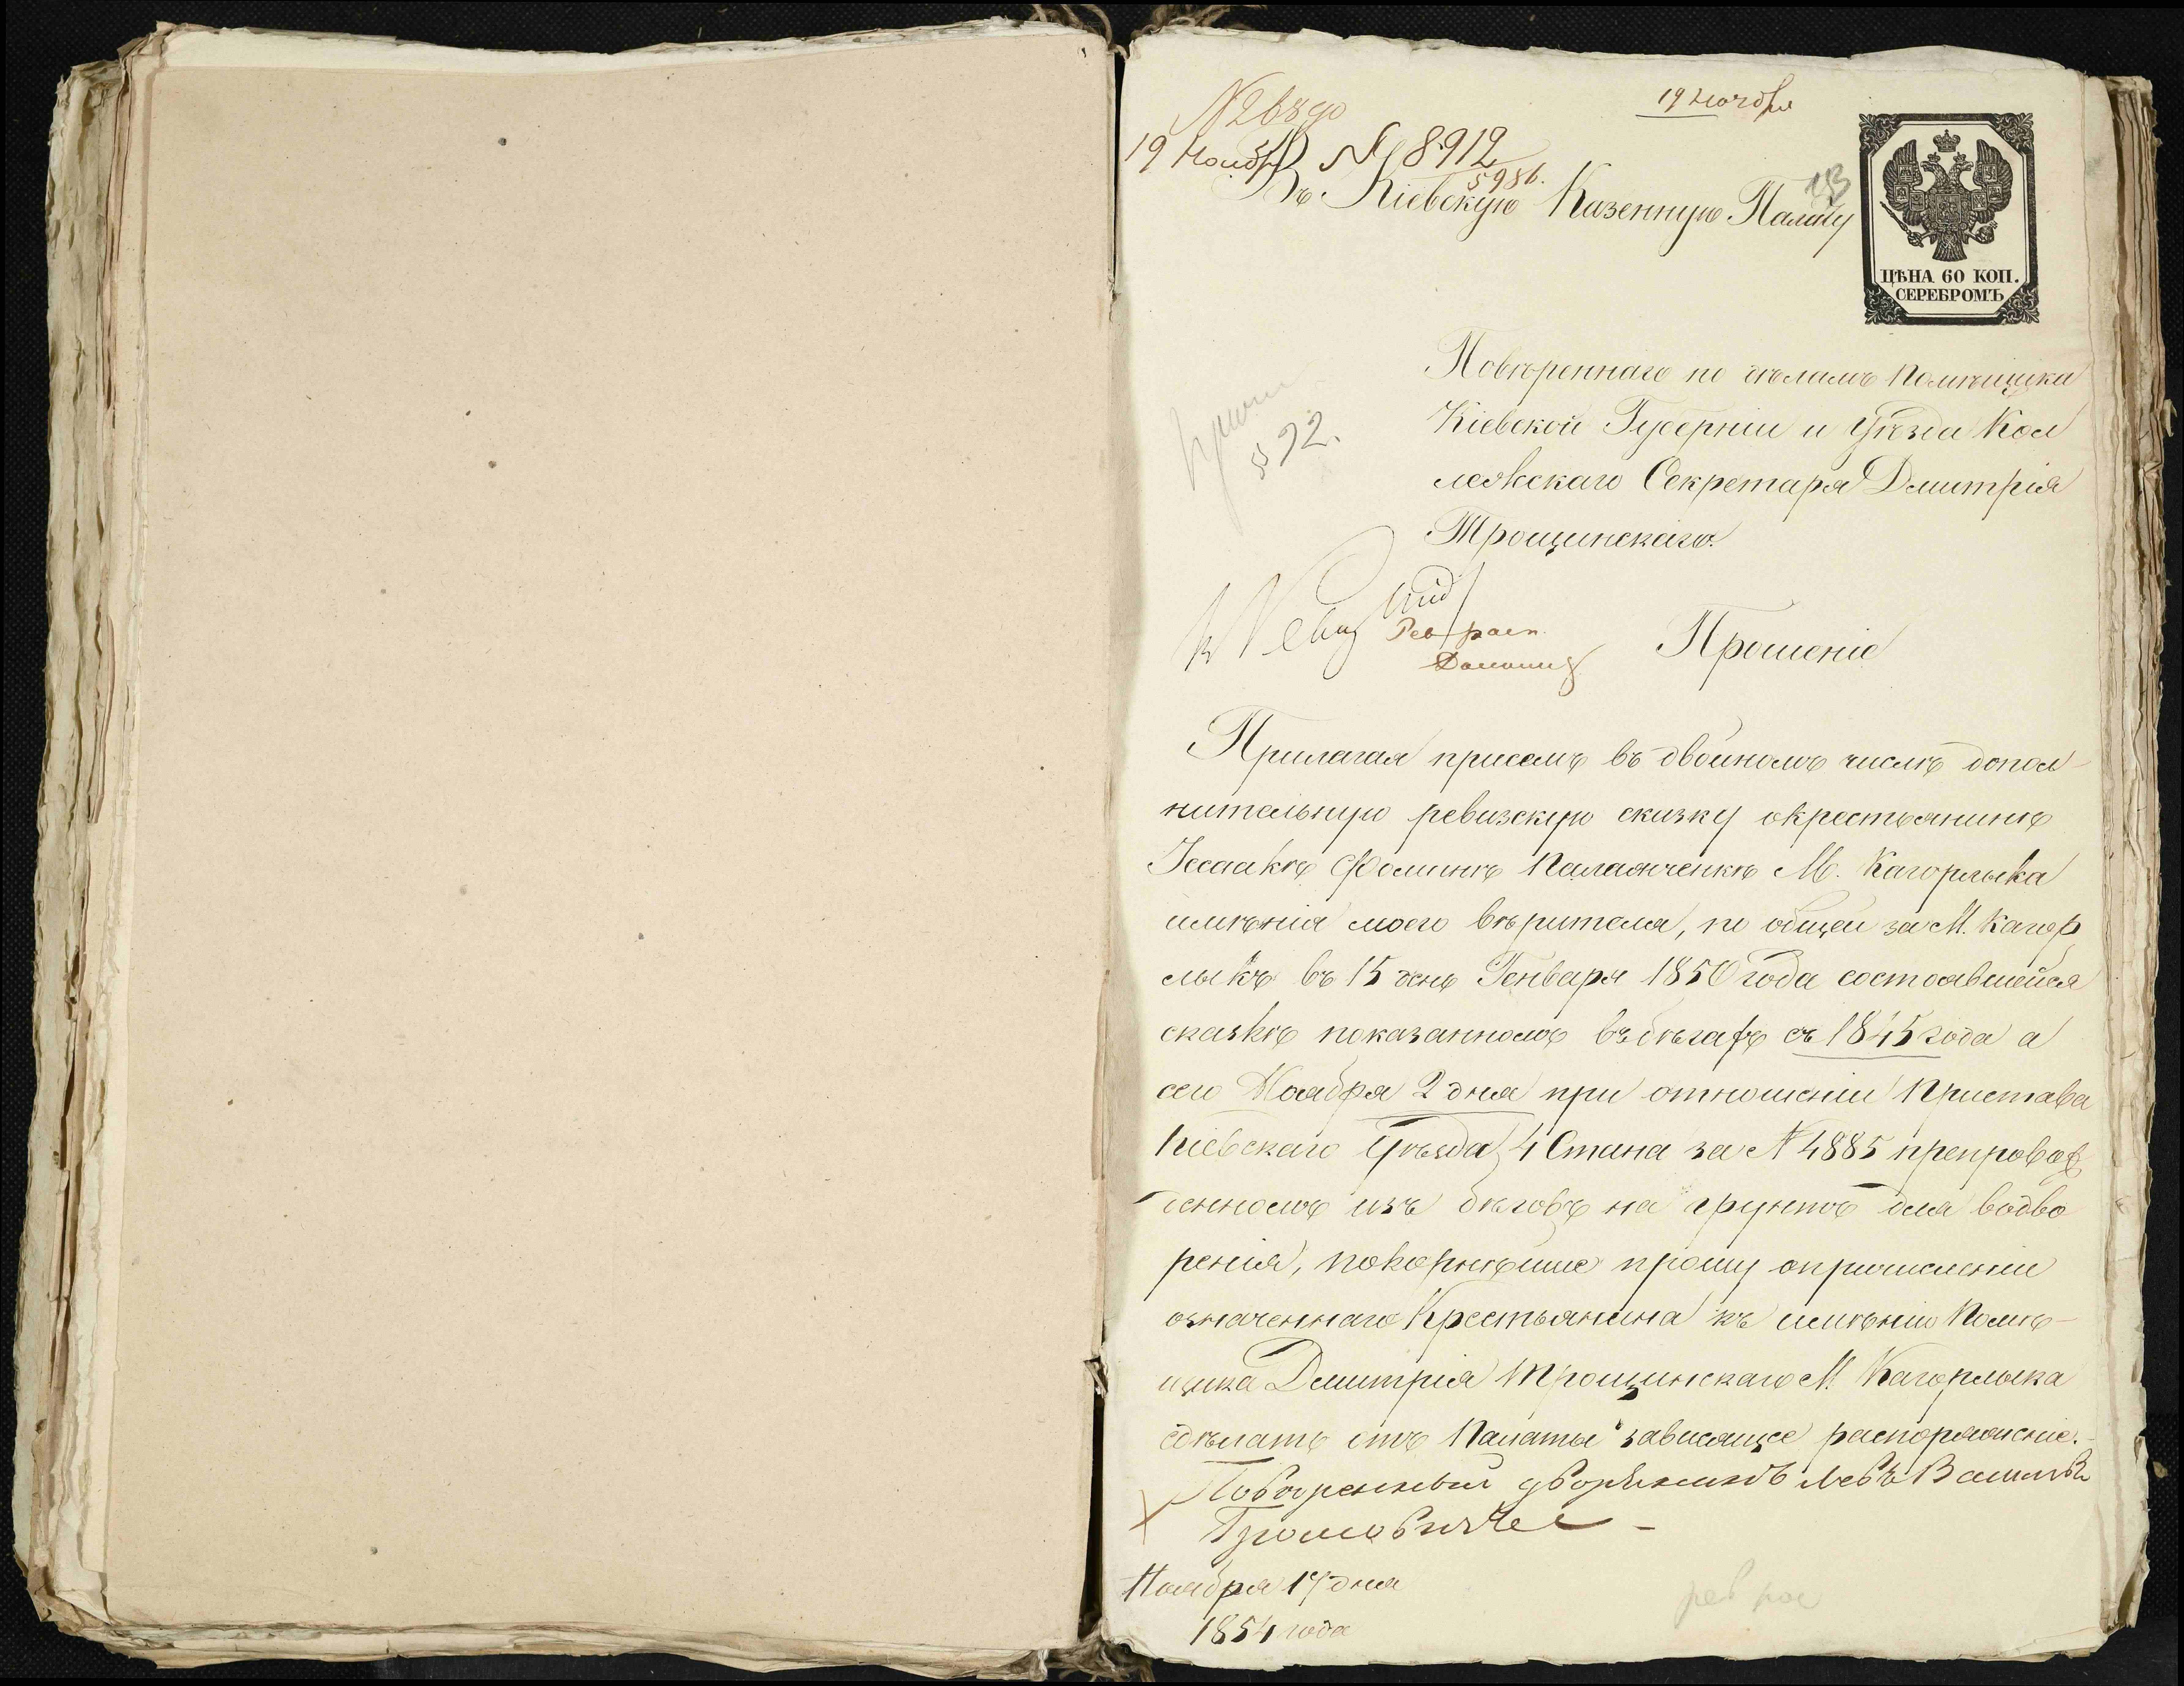 19 ноября
19 Ноября № 8912
5986.
Въ Кіевскую Казенную Палату
ЦѢНА 60 КОП.
СЕРЕБРОМЪ
Повѣреннаго по дѣламъ Помѣщика
Кіевской Губерніи и Уѣзда Кол
лежскаго Секретаря Дмитрія
§ 92.
Трощинскаго.
Прошеніе
Прилагая присемъ въ двойномъ числѣ допол-
нительную ревизскую сказку окрестьянинѣ
Исаакѣ Фоминѣ Паламченкѣ М. Кагорлыка
имѣнія моего вѣрителя, по общей за М. Кагор
лыкъ въ 15 день Генваря 1850 года состоявшейся
сказкѣ показанномъ въ бѣгахъ съ 1845 года а
сего Ноября 2 дня при отношеніи Пристава
Кіевскаго Уѣзда 4 Стана за № 4885 препровож
денномъ изъ бѣговъ на грунтъ для водво
ренія, покорнѣйше прошу опричисленіи
означеннаго Крестьянина къ имѣнію Помѣ-
щика Дмитрія Трощинскаго М. Кагорлыка
сдѣлать отъ Палаты зависящее распоряженіе.
Повѣренный дворянинъ Левъ
Громовичъ
Ноября 17 дня
1854 года